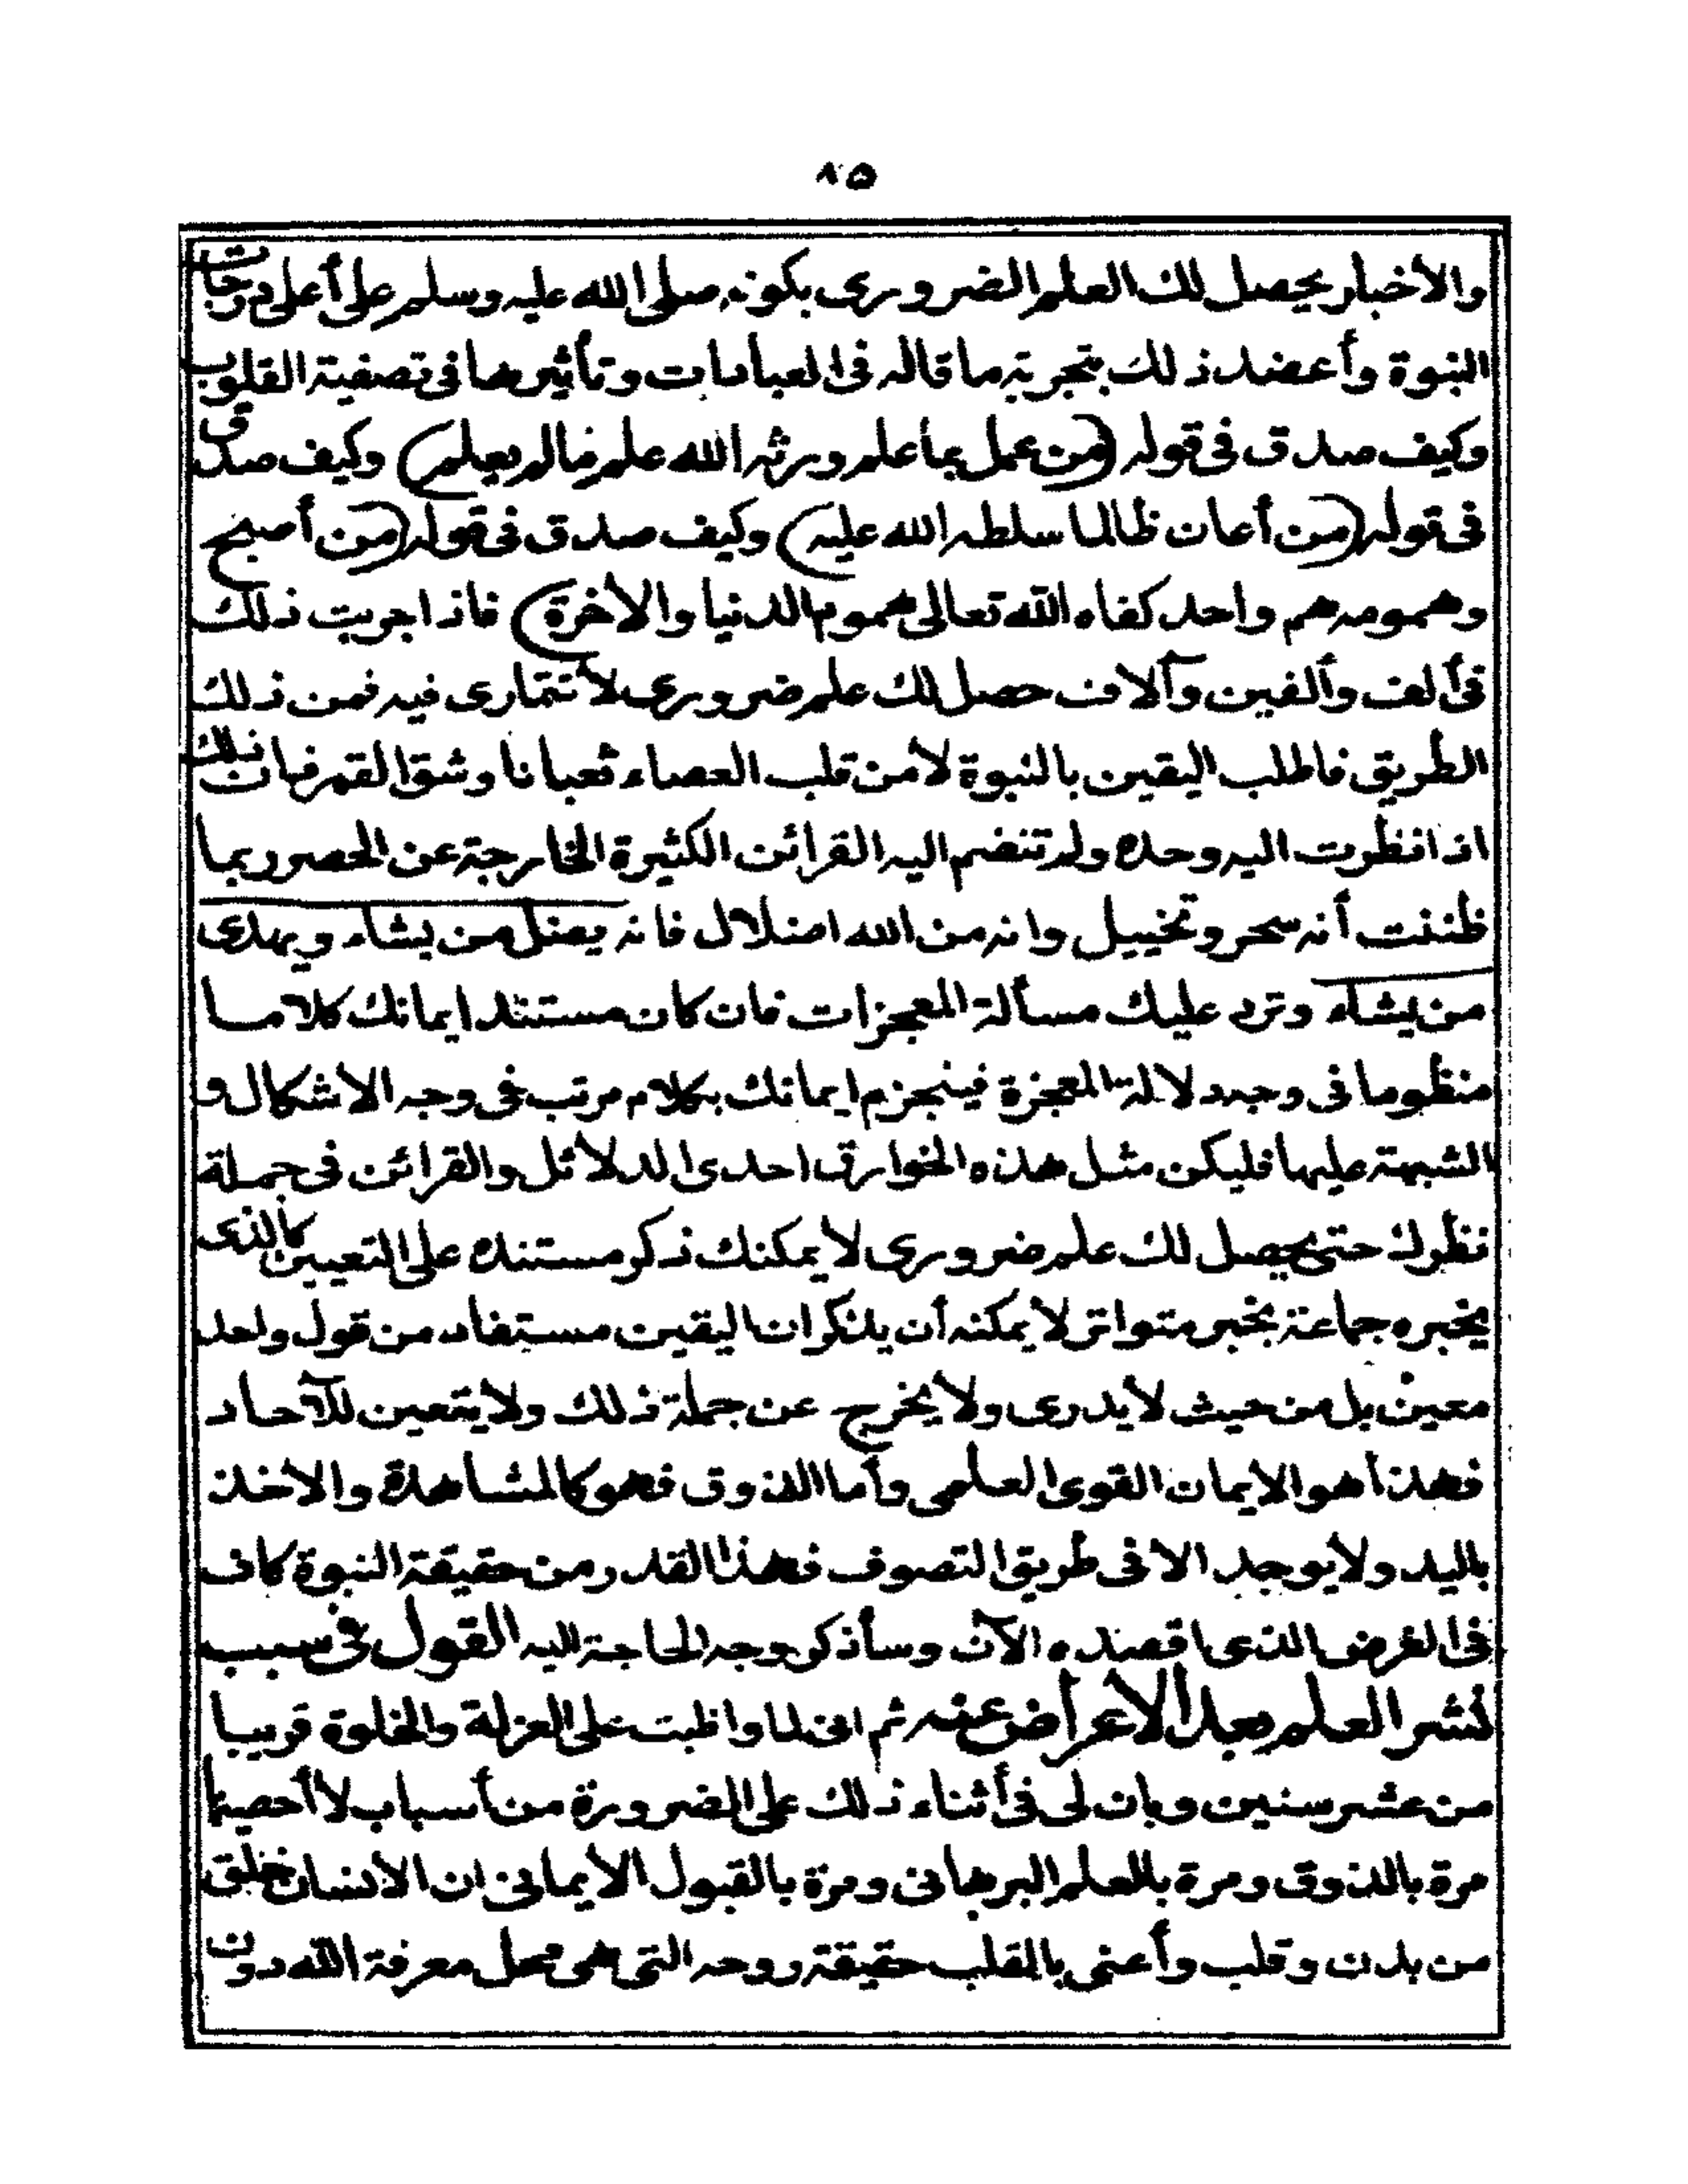 ٨٥
والأخبار يحصل لك العلم الضروري بكونه صلى الله عليه وسلم على أعلى درجات
النبوة وأعضد ذلك بتجربة ما قاله في العبادات وتأثيرها في تصفية القلوب
وكيف صدق في قوله (من عمل بما علم ورثه الله علم مالم يعلم) وكيف صدق
في قوله (من أعان ظالما سلطه الله عليه) وكيف صدق في قوله (من أصبح
وهمومه هم واحد كفاه الله تعالى هموم الدنيا والأخرة) فاذا جربت ذلك
في ألف وألفين وآلاف حصل لك علم ضروري لا تتمارى فيه فمن ذلك
الطريق فاطلب اليقين بالنبوة لا من قلب العصاء ثعبانا وشق القمر فان ذلك
اذا نظرت اليه وحده ولم تنضم اليه القرائن الكثيرة الخارجة عن الحصر ربما
ظننت أنه سحر وتخييل وانه من الله اضلال فانه يضل من يشاء ويهدى
من يشاء وترد عليك مسألة المعجزات فان كان مستند ايمانك كلاما
منظوما في وجه دلالة المعجزة فينجزم ايمانك بكلام مرتب في وجه الاشكال و
الشبهة عليها فليكن مثل هذه الخوارق احدى الدلائل والقرائن في جملة
نظرك حتى يحصل لك علم ضروري لا يمكنك ذكر مستنده على التعيين كالذى
يخبره جماعة بخبر متواتر لا يمكنه أن يذكر ان اليقين مستفاد من قول واحد
معين بل من حيث لا يدرى ولا يخرج عن جملة ذلك ولا يتعين للآحاد
فهذا هو الايمان القوى العلمى وأما الذوق فهو كالمشاهدة والاخذ
باليد ولا يوجد الا في طريق التصوف فهذا القدر من حقيقة النبوة كاف
في الغرض الذى اقصده الآن وسأذكر وجه الحاجة اليه القول في سبب
نشر العلم بعد الأعراض عنه ثم انى لما واظبت على العزلة والخلوة قريبا
من عشر سنين وبان لى في أثناء ذلك على الضرورة من أسباب لا أحصيها
مرة بالذوق ومرة بالعلم البرهانى ومرة بالقبول الأيمانى ان الأنسان خلق
من بدن وقلب وأعنى بالقلب حقيقة روحه التى هى محل معرفة الله دون